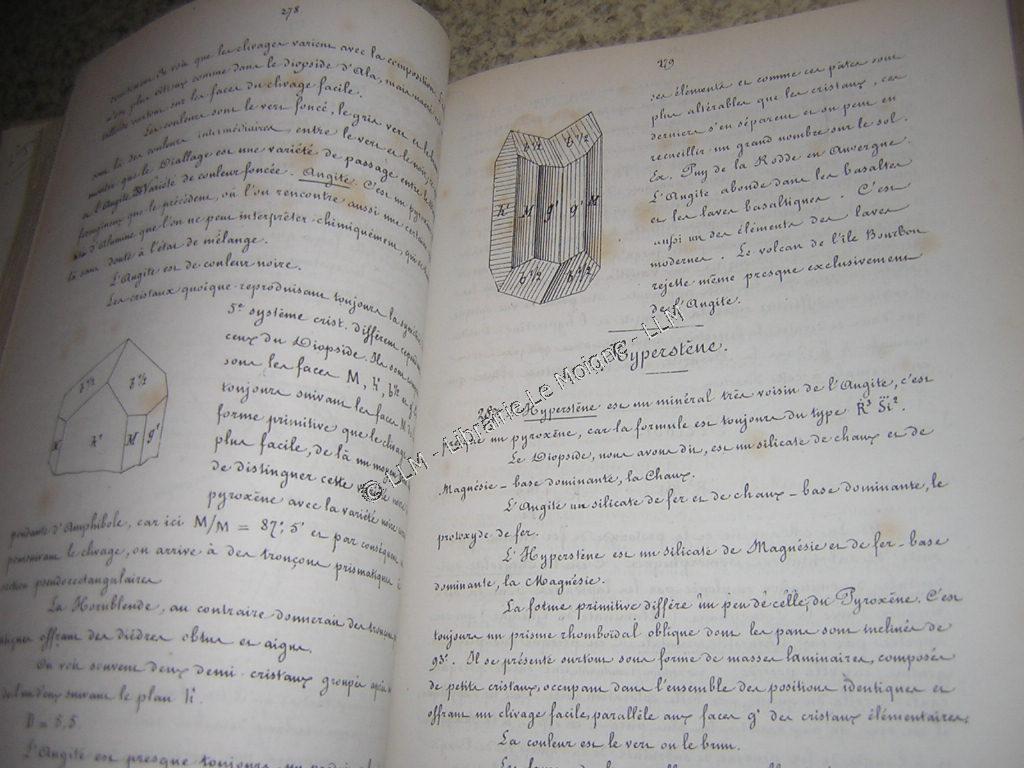 278
on voit que les clivages varient avec la composition.
plus vitreux comme dans le diopside d'Ala, mais
surtout sur les faces du clivage facile.
Les couleurs sont le vert foncé, le gris vert et le
sont des couleurs intermédiaires, entre le vert et le noir
montre que le Diallage est une variété de passage entre
à l'Augite. Variété de couleur foncée. Augite. C'est un pyroxène
que le précédent, où l'on rencontre aussi une certaine
d'alumine que l'on ne peut interpréter chimiquement, qui
là sans doute à l'état de mélange.
L'Augite est de couleur noire.
Les cristaux quoique reproduisant toujours la symétrie
5e système crist. diffèrent
ceux du Diopside. Ils sont
sont les faces M, h', b½ et g'
toujours suivant les faces M
forme primitive que le clivage
plus facile, de là un moyen
de distinguer cette
pyroxène avec la variété noire
b½ b½
h' M g'
d'Amphibole, car ici M/M = 87°,5' et par conséquent
le clivage, on arrive à des tronçons prismatiques à
section pseudorectangulaires
La Hornblende, au contraire donnerait des
offrant des dièdres obtus et aigus.
On voit souvent deux demi-cristaux groupés
suivant le plan h'.
D = 3,5.
L'Augite est presque toujours
279
b½ b½
h' M g' g' M
b½ b½
ses éléments et comme ces pâtes sont
plus altérables que les cristaux, ces
derniers s'en séparent et on peut en
recueillir un grand nombre sur le sol.
Ex. Puy de la Rodde en Auvergne.
L'Augite abonde dans les basaltes
et les laves basaltiques. C'est
aussi un des éléments des laves
modernes. Le volcan de l'île Bourbon
rejette même presque exclusivement
de l'Augite.
Hyperstène.
Hyperstène est un minéral très voisin de l'Augite, c'est
un pyroxène, car la formule est toujours du type R³ Si².
Le Diopside, nous avons dit, est un silicate de chaux et de
Magnésie - base dominante, la Chaux.
L'Augite un silicate de fer et de chaux - base dominante, le
protoxyde de fer.
L'Hyperstène est un silicate de Magnésie et de fer - base
dominante, la Magnésie.
La forme primitive diffère un peu de celle du Pyroxène. C'est
toujours un prisme rhomboïdal oblique dont les pans sont inclinés de
93°. Il se présente surtout sous forme de masses laminaires, composées
de petits cristaux, occupant dans l'ensemble des positions identiques et
offrant un clivage facile, parallèle aux faces g' des cristaux élémentaires.
La couleur est le vert ou le brun.
© LLM - Librairie Le Moigne - LLM